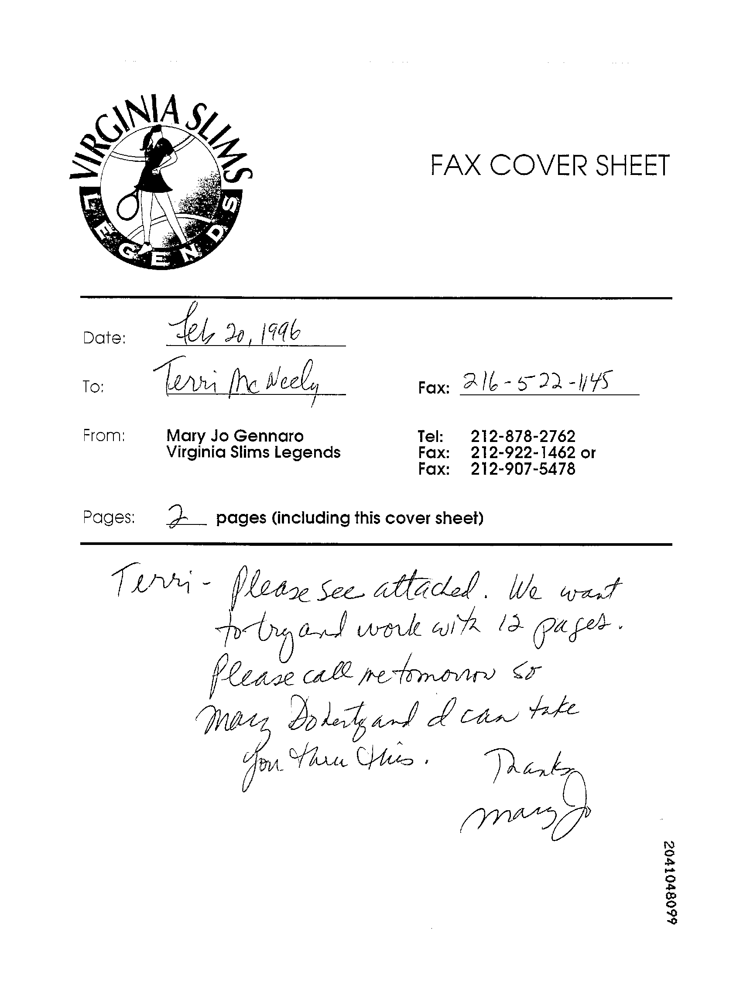 VIRGINIA SLIMS
LEGENDS
FAX COVER SHEET
Date: Feb 20, 1996
To: Terri McNeely Fax: 216-522-1145
From: Mary Jo Gennaro Tel: 212-878-2762
Virginia Slims Legends Fax: 212-922-1462 or
Fax: 212-907-5478
Pages: 2 pages (including this cover sheet)
Terri - Please see attached. We want
to try and work with 12 pages.
Please call me tomorrow so
Mary Doherty and I can take
you thru this. Thanks
Mary Jo
2041048099